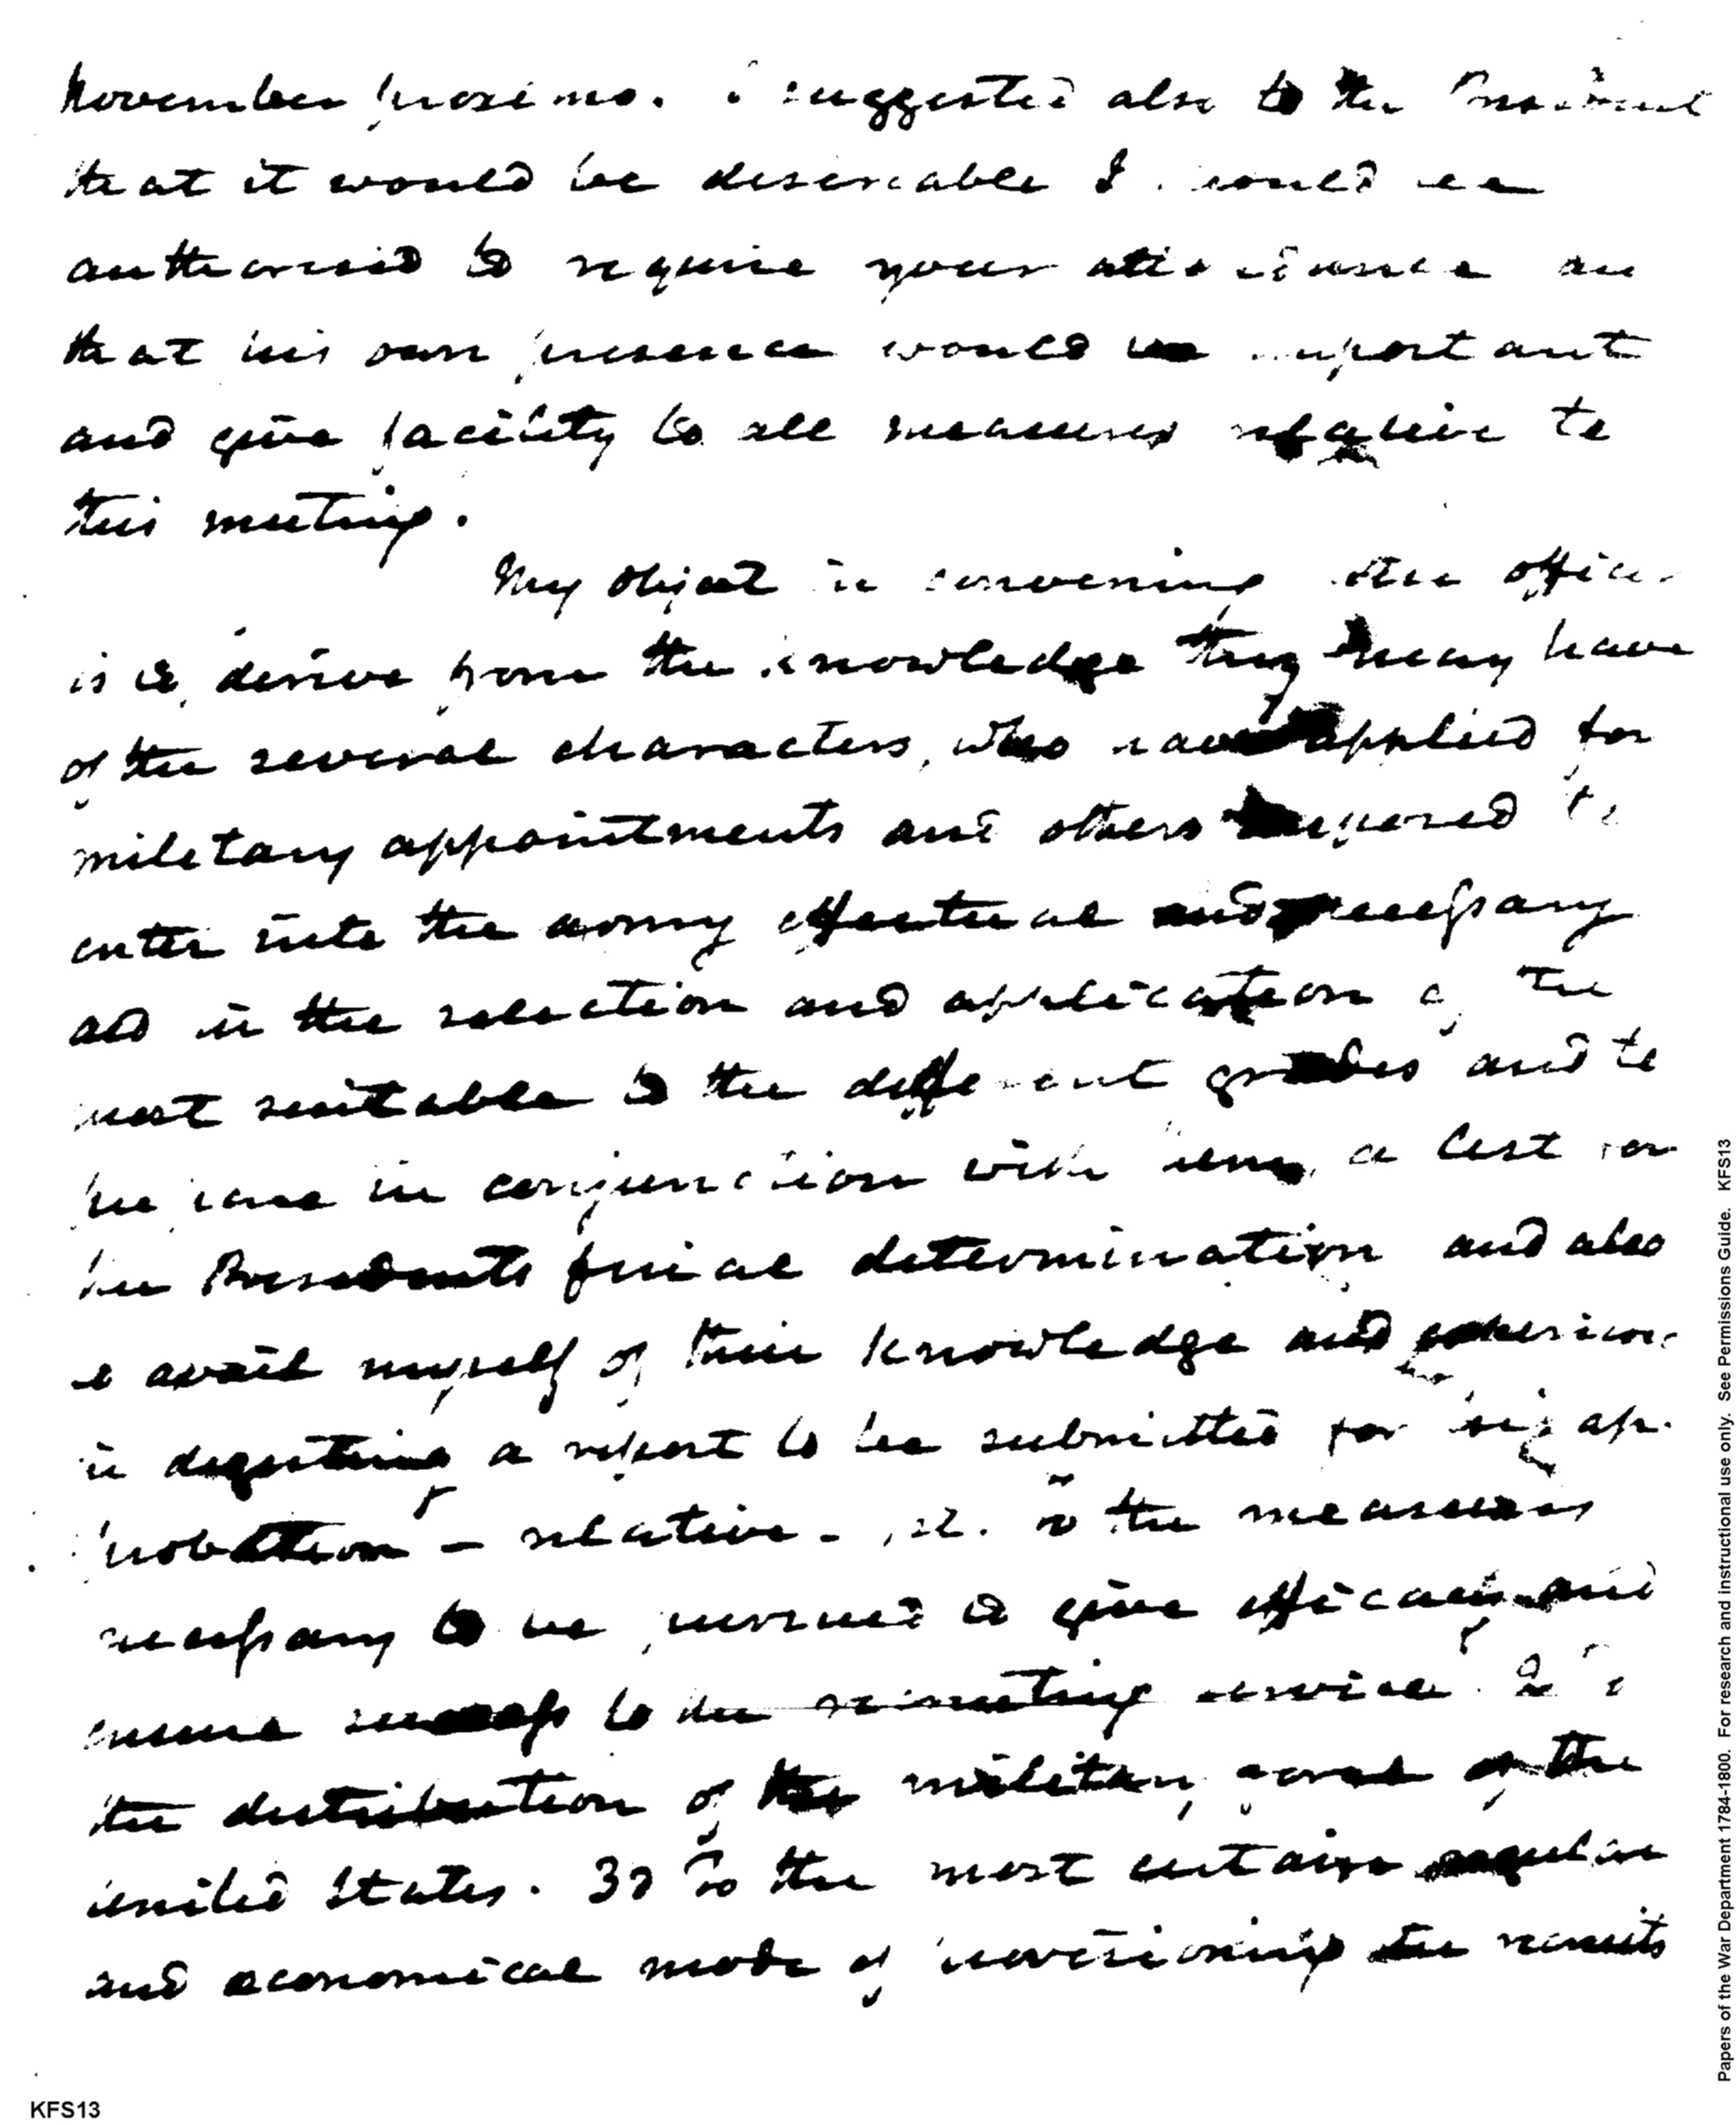 November proximo. I suggested also to the President
that it would be desireable I could be
authorised to require your attendance and
that his own presence would be important
and give facility to all measures relative to
this meeting.
My object in convening the officers
is to derive from the knowledge they may have
of the several characters, who have applied for
military appointments and others disposed to
enter into the army effectual and necessary
aid in the selection and application of the
most suitable to the different grades and to
prepare in conjunction with them, a list for
the Presidents final determination and also
to avail myself of their knowledge and experience
in digesting a report to be submitted for his ap-
probation - relative - 1st. to the measures
necessary to be pursued to give efficacy and
ensure success to the recruiting service. 2d to
the distribution of the military force of the
united States. 3d To the most certain regular
and economical mode of provisioning the recruits
KFS13
Papers of the War Department 1784-1800. For research and instructional use only. See Permissions Guide. KFS13